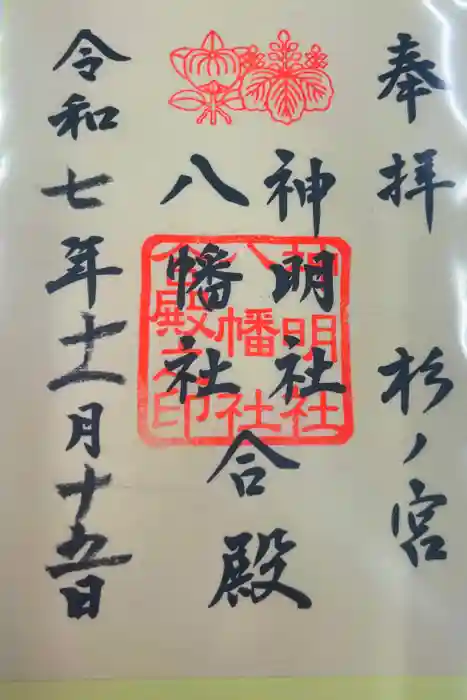 奉拝 杉ノ宮
神明社
八幡社
合殿
令和七年十一月十五日
神明社
八幡社
合殿之印